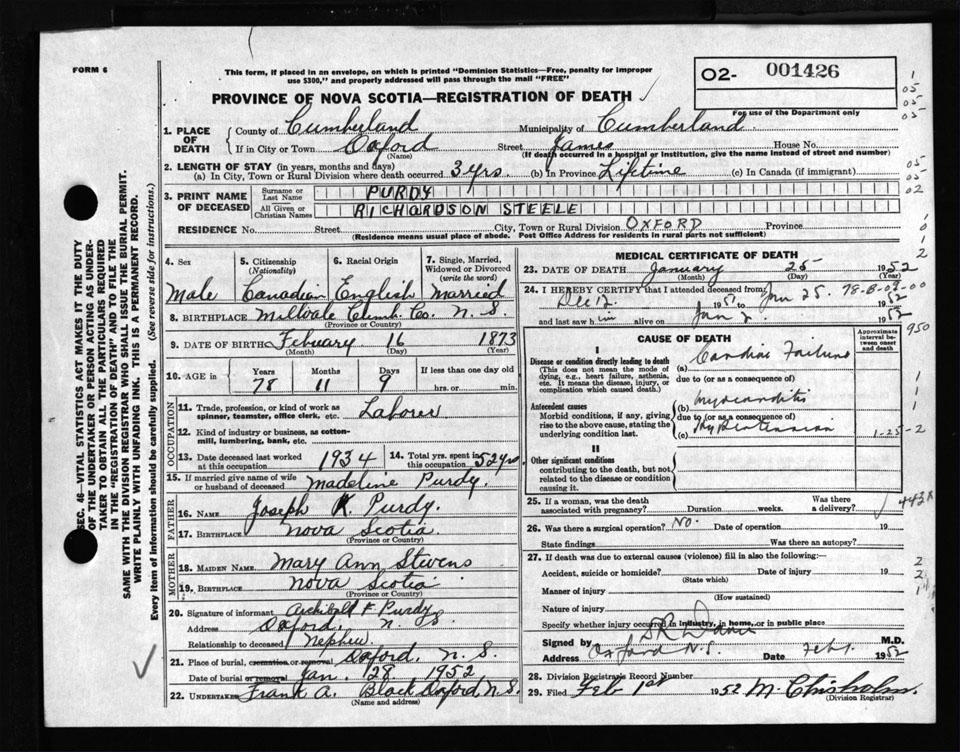 FORM 6
This form, if placed in an envelope, on which is printed "Dominion Statistics—Free, penalty for improper
use $300," and properly addressed will pass through the mail "FREE"
O2- 001426
PROVINCE OF NOVA SCOTIA—REGISTRATION OF DEATH
For use of the Department only
1. PLACE OF DEATH
County of Cumberland Municipality of Cumberland
If in City or Town Oxford Street James House No.
(Name) (If death occurred in a hospital or institution, give the name instead of street and number)
2. LENGTH OF STAY (in years, months and days)
(a) In City, Town or Rural Division where death occurred 3 yrs. (b) In Province Lifetime (c) In Canada (if immigrant)
3. PRINT NAME OF DECEASED
Surname or Last Name PURDY
All Given or Christian Names RICHARDSON STEELE
RESIDENCE No. Street City, Town or Rural Division OXFORD Province
(Residence means usual place of abode. Post Office Address for residents in rural parts not sufficient)
4. Sex 5. Citizenship (Nationality) 6. Racial Origin 7. Single, Married, Widowed or Divorced (write the word)
Male Canadian English Married
8. BIRTHPLACE Millvale Cumb. Co. N. S.
(Province or Country)
9. DATE OF BIRTH Febuary 16 1873
(Month) (Day) (Year)
10. AGE in Years Months Days If less than one day old
78 11 9 hrs. or min.
OCCUPATION
11. Trade, profession, or kind of work as spinner, teamster, office clerk, etc. Laborer
12. Kind of industry or business, as cotton-mill, lumbering, bank, etc.
13. Date deceased last worked at this occupation 1934 14. Total yrs. spent in this occupation 52 yrs
15. If married give name of wife or husband of deceased Madeline Purdy.
FATHER
16. Name Joseph K. Purdy.
17. Birthplace Nova Scotia
(Province or Country)
MOTHER
18. MAIDEN NAME Mary Ann Stevens
19. BIRTHPLACE Nova Scotia
(Province or Country)
20. Signature of informant Archibald F Purdy
Address Oxford, N. S.
Relationship to deceased Nephew.
21. Place of burial, cremation or removal Oxford, N. S.
Date of burial or removal Jan. 28. 1952
22. UNDERTAKER Frank A. Black Oxford, N. S.
(Name and address)
MEDICAL CERTIFICATE OF DEATH
23. DATE OF DEATH January 25 1952
(Month) (Day) (Year)
24. I HEREBY CERTIFY that I attended deceased from
Dec 12 1951 to Jan 25. 1952
78-B-02-00
and last saw him alive on Jan 2 1952
CAUSE OF DEATH
Approximate interval between onset and death
I
Disease or condition directly leading to death
(This does not mean the mode of dying, e.g., heart failure, asthenia, etc. It means the disease, injury, or complication which caused death.)
(a) Cardiac Failure
due to (or as a consequence of)
Antecedent causes
Morbid conditions, if any, giving rise to the above cause, stating the underlying condition last.
(b) Myocarditis
due to (or as a consequence of)
(c) Hypertension
1-25-2
II
Other significant conditions
contributing to the death, but not related to the disease or condition causing it.
25. If a woman, was the death associated with pregnancy? Duration weeks. Was there a delivery?
26. Was there a surgical operation? No. Date of operation 19
State findings Was there an autopsy?
27. If death was due to external causes (violence) fill in also the following:—
Accident, suicide or homicide? Date of injury 19
(State which)
Manner of injury
(How sustained)
Nature of injury
Specify whether injury occurred in industry, in home, or in public place
Signed by M.D.
Address Oxford N.S. Date Feb 1. 1952
28. Division Registrar's Record Number
29. Filed Feb 1st 1952 M. Chisholm.
(Division Registrar)
SEC. 46—VITAL STATISTICS ACT MAKES IT THE DUTY
OF THE UNDERTAKER OR PERSON ACTING AS UNDER-
TAKER TO OBTAIN ALL THE PARTICULARS REQUIRED
IN THE "REGISTRATION OF DEATH" AND TO FILE THE
SAME WITH THE DIVISION REGISTRAR WHO SHALL ISSUE THE BURIAL PERMIT.
WRITE PLAINLY WITH UNFADING INK. THIS IS A PERMANENT RECORD.
Every item of information should be carefully supplied. (See reverse side for instructions.)
1
05
05
05
05
05
02
1
0
1
2
950
1
1
1
443X
2
2
1